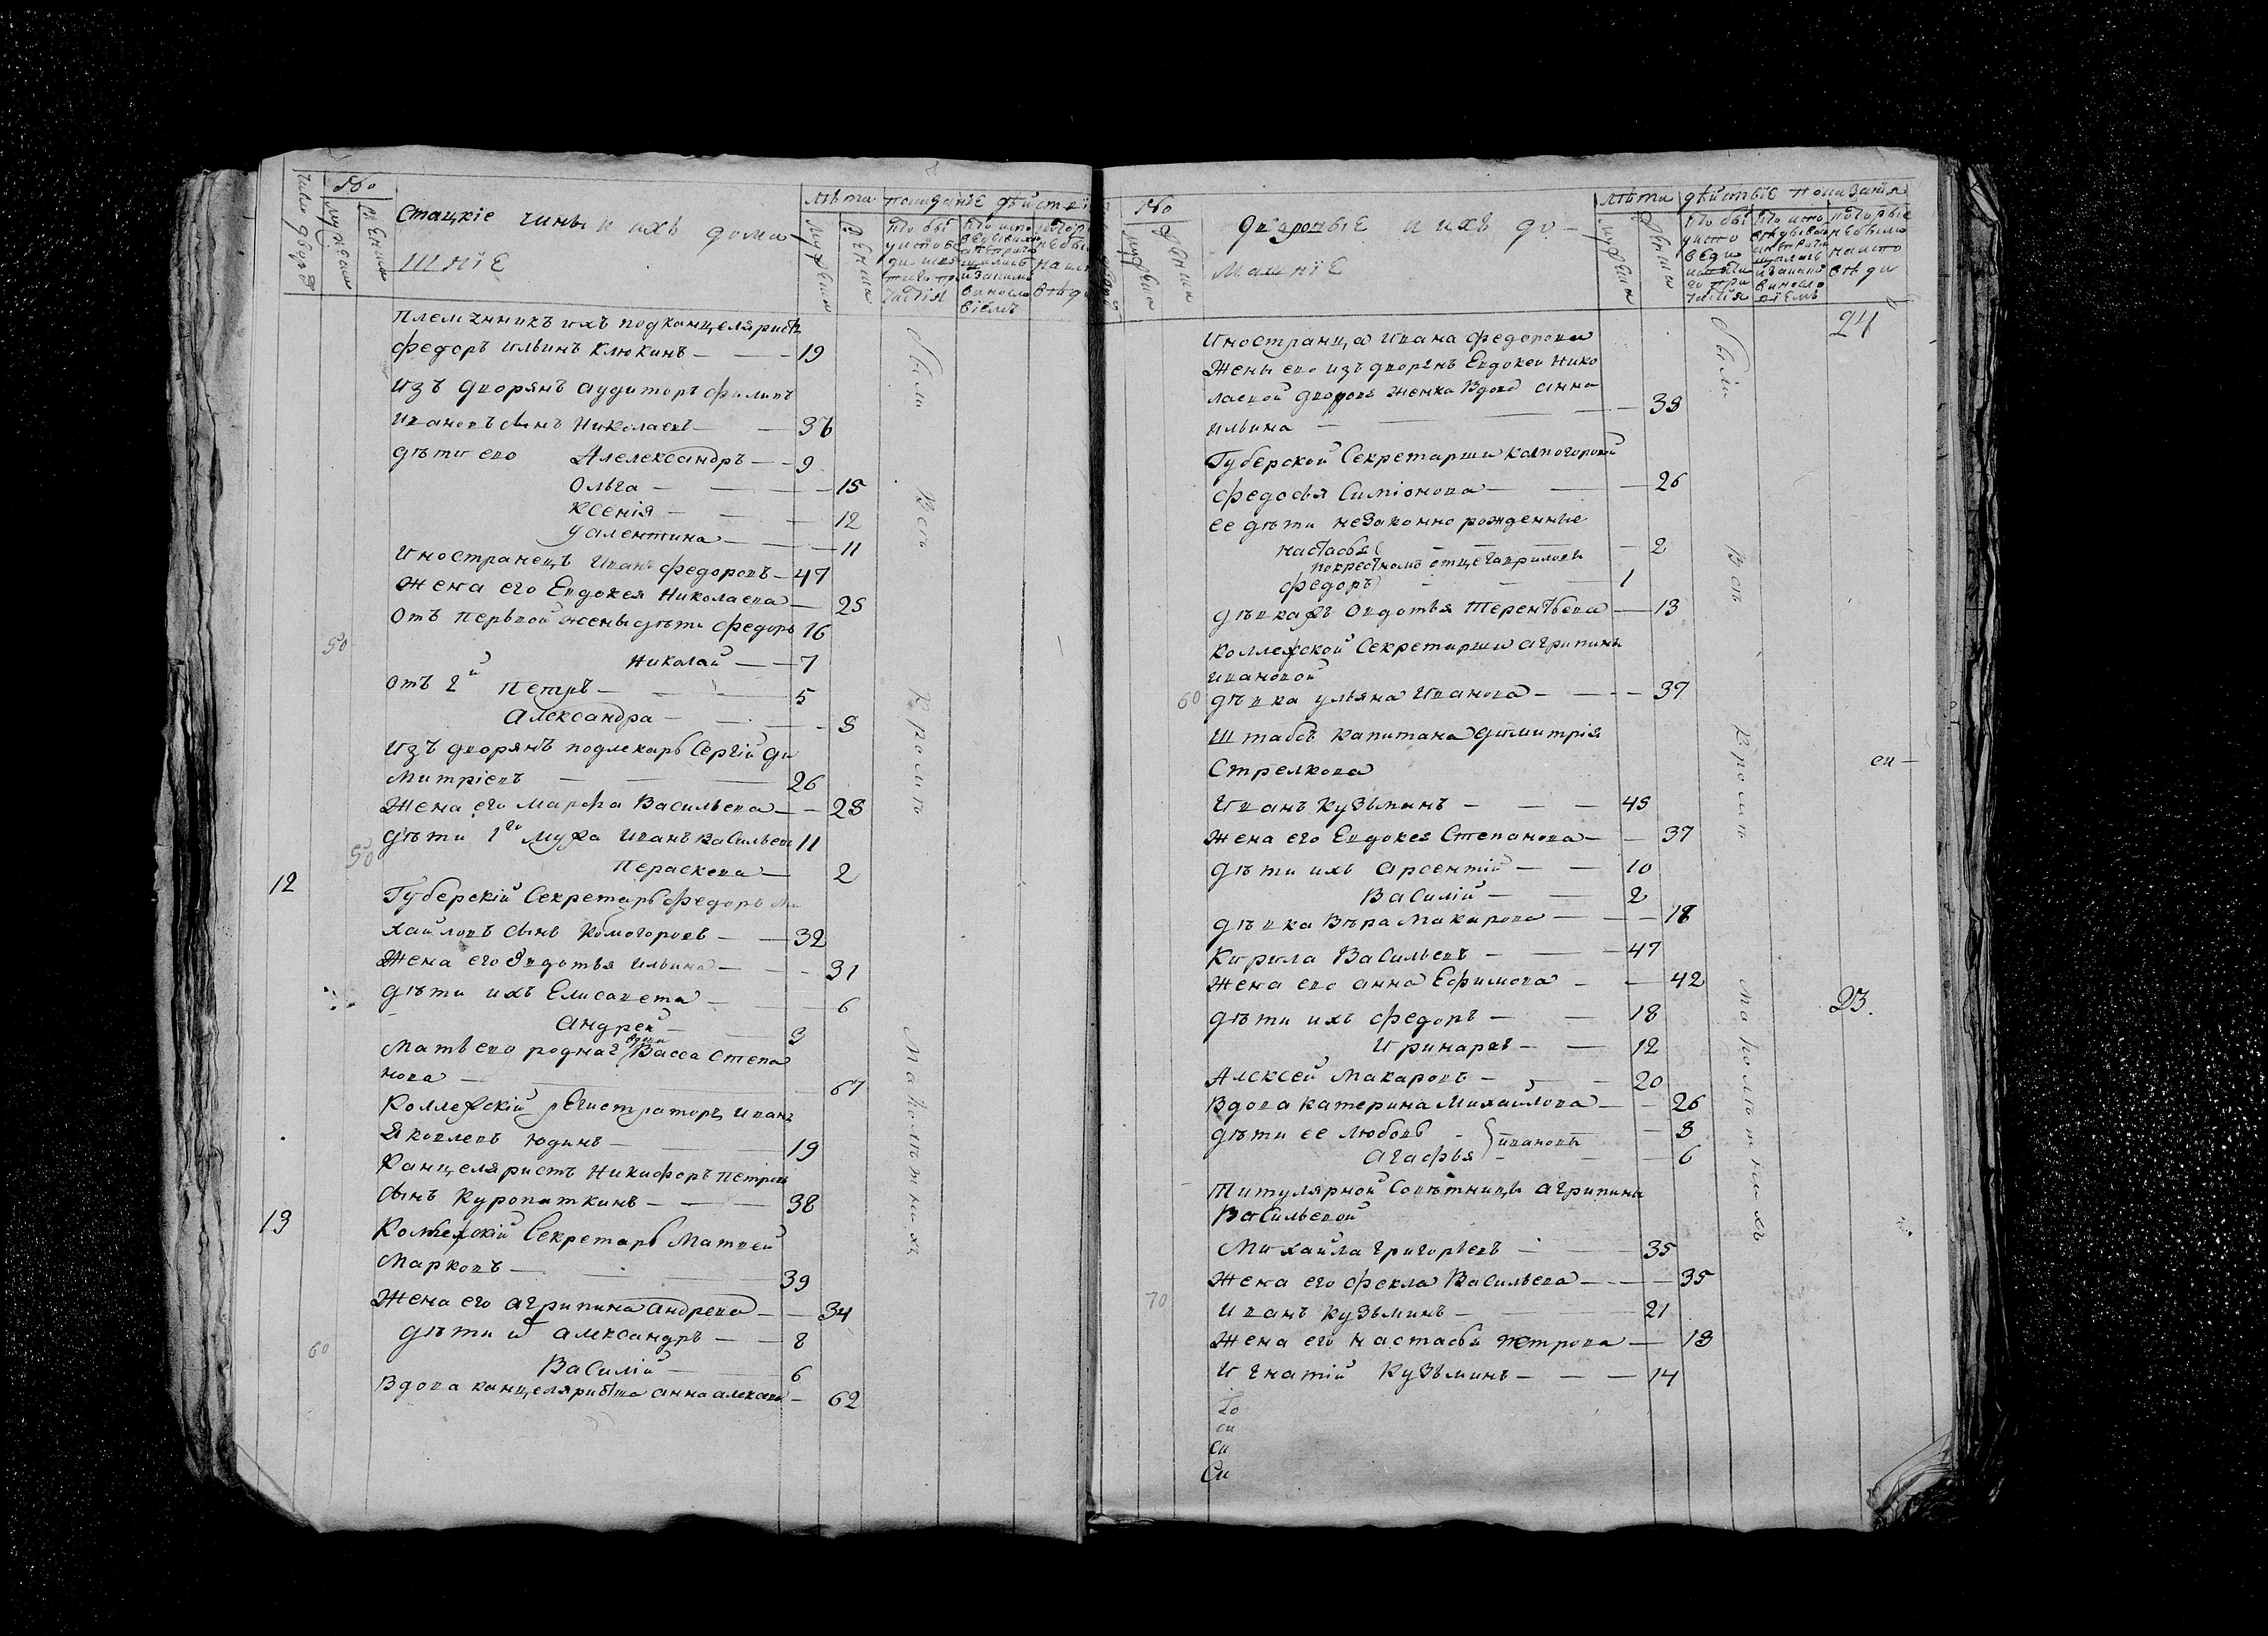 Число дворовъ
№
мужеска
женска
Стацкіе чины и ихъ дома
шніе
лѣта
мужеска
женска
показаніе дѣйст
Племянникъ ихъ подканцеляристъ
Федоръ Ильинъ Клюкинъ — 19
Изъ дворянъ аудиторъ Филипъ
Ивановъ сынъ Николаевъ — 36
дѣти его Алелександръ — 9
Ольга — 15
Ксенія — 12
Уалентина — 11
Иностранецъ Иванъ Федоровъ — 47
Жена его Евдокея Николаева — 25
Отъ первой жены дѣти Федоръ 16
50
Николай — 7
отъ 2й Петръ — 5
Александра — 8
Изъ дворянъ подлекарь Сергій Ди
митріевъ — 26
Жена его Марфа Васильева — 28
дѣти 1го мужа Иванъ Васильевъ 11
50
Параскева — 2
12
Губерскій Секретарь Федоръ Ми
хайловъ сынъ Комогоровъ — 32
Жена его Евдотья Ильина — 31
дѣти ихъ Елисавета — 6
Андрей — 3
Мать его родная вдова Васса Степа
нова — 67
Коллежскій регистраторъ Иванъ
Яковлевъ Юдинъ — 19
Канцеляристъ Никифоръ Петровъ
сынъ Куропаткинъ — 38
13
Коллежскій Секретарь Матвей
Марковъ — 39
Жена его Агрипина Андрева — 34
дѣти Александръ — 8
60
Василій — 6
Вдова канцеляристша Анна Алексева — 62
Были Всѣ Кромѣ Малолѣтнихъ
№
мужеска
женска
Дворовые и ихъ до
машніе
лѣта
дѣйствіе показанія
мужеска
женска
24
Иностранца Ивана Федорова
Жены его изъ дворянъ Евдокеи Нико
лаевой дворовая женка Вдова Анна
Ильина — 38
Губерской Секретарши Комогоровой
Федосья Симіонова — 26
ее дѣти незаконно рожденные
Настасья — 2
по крестномъ отце Гавриловы
Федоръ — 1
дѣвка Овдотья Терентьева — 13
Коллежской Секретарши Агрипины
Ивановой
60
дѣвка Ульяна Иванова — 37
Штабсъ Капитана Димитрія
Стрелкова
Иванъ Кузьминъ — 45
Жена его Евдокея Степанова — 37
дѣти ихъ Арсентій — 10
Василій — 2
дѣвка Вѣра Макарова — 18
Кирила Васильевъ — 47
Жена его Анна Ефимова — 42
23.
дѣти ихъ Федоръ — 18
Иринархъ — 12
Алексей Макаровъ — 20
Вдова Катерина Михайлова — 26
дѣти ее Любовь — 8
Ивановы
Агафья — 6
Титулярной Совѣтницы Агрипины
Васильевой
Михайла Григорьевъ — 35
Жена его Фекла Васильева — 35
70
Иванъ Кузьминъ — 21
Жена его Настасья Петрова — 18
Игнатій Кузьминъ — 14
Были Всѣ Кромѣ Малолѣтнихъ